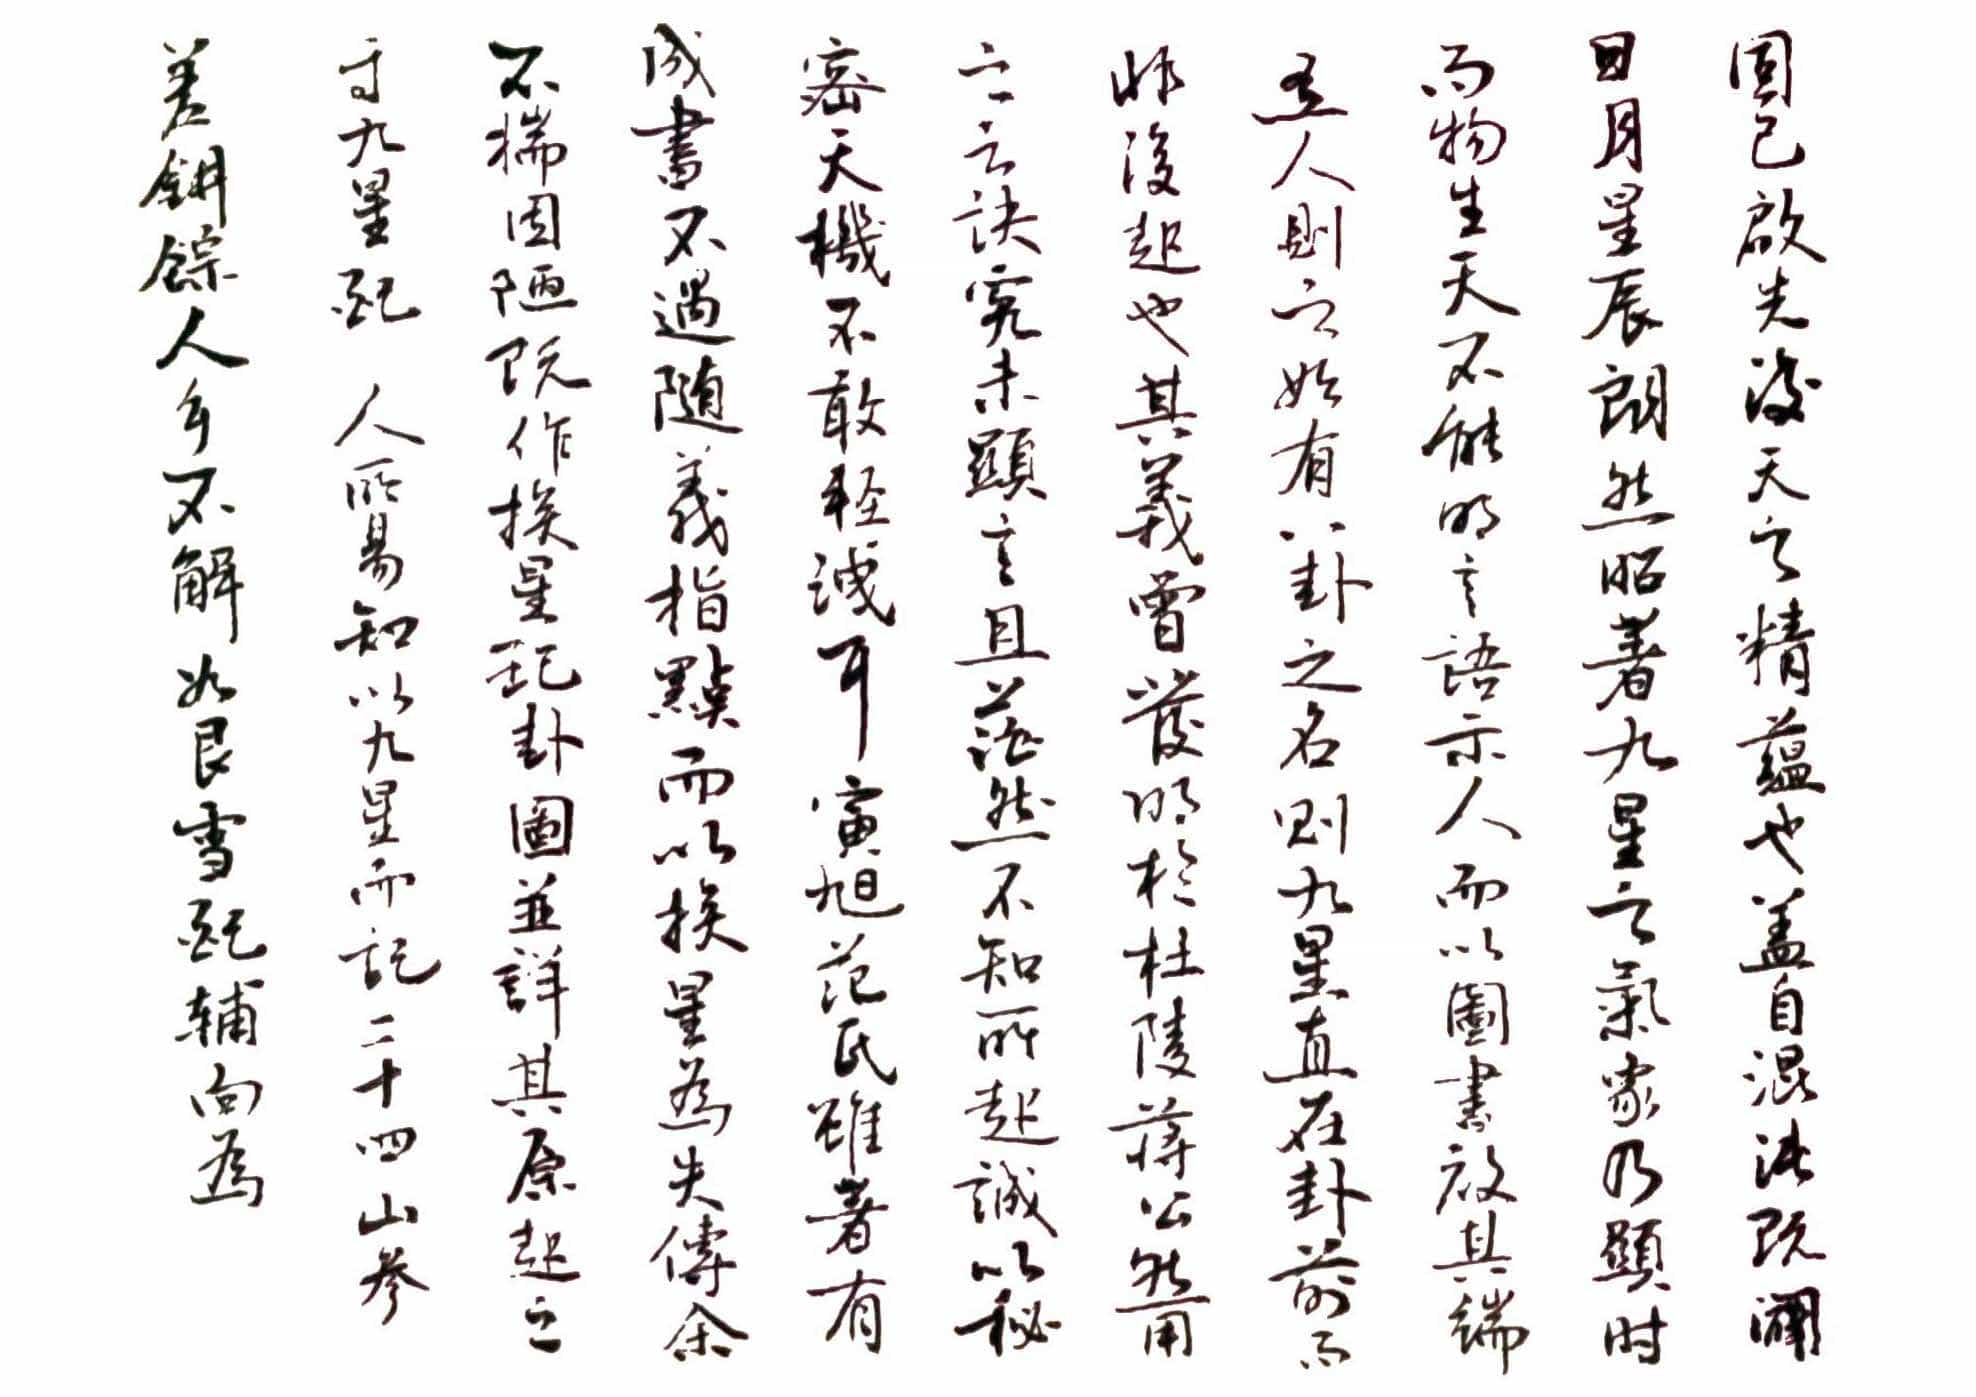 固已啟先後天之精蘊也蓋自混沌既濶
日月星辰朗然昭著九星之氣象乃顯时
而物生天不能明言語示人而以圖書啟其端
聖人則之始有八卦之名则九星直在卦前而
卦後起也其義曾發明於杜陵蒋公然用
之之訣究未顯言且茫然不知所起誠以秘
密天機不敢輕洩耳寅旭范氏雖著有
成書不過隨義指點而以挨星為失傳余
不揣固陋既作挨星起卦圖並詳其原起之
于九星配 人所易知以九星而記二十四山參
差錯綜人多不解如艮雪配輔向為